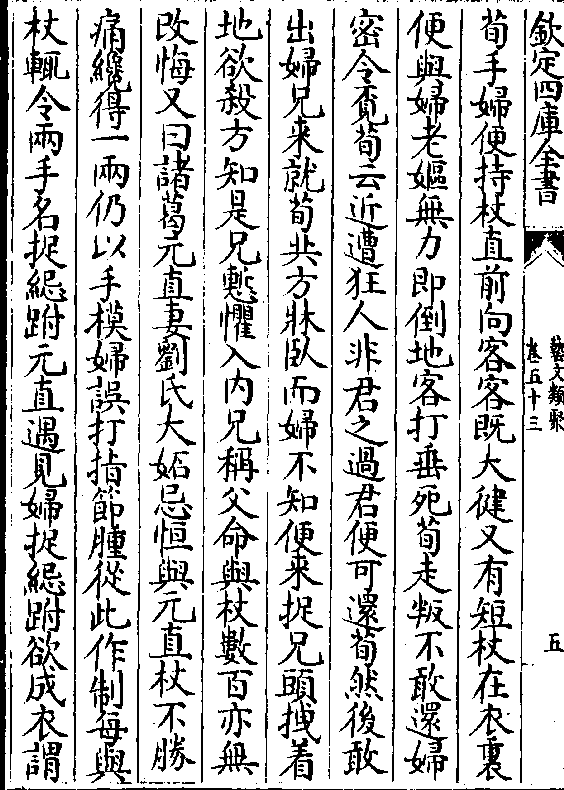 欽定四庫全書
藝文類聚
卷五十三
五
荀手婦便持杖直前向客客既大健又有短杖在衣裏
便與婦老嫗無力即倒地客打垂死荀走叛不敢還婦
密令覓荀云近遭狂人非君之過君便可還荀然後敢
出婦兄来就荀共方牀臥而婦不知便来捉兄頭拽着
地欲殺方知是兄慙懼入内兄稱父命與杖數百亦無
改悔又曰諸葛元直妻劉氏大妬忌恒與元直杖不勝
痛纔得一兩仍以手模婦誤打指節腫從此作制每與
杖輒令兩手名捉緦跗元直遇見婦捉緦跗欲成衣謂